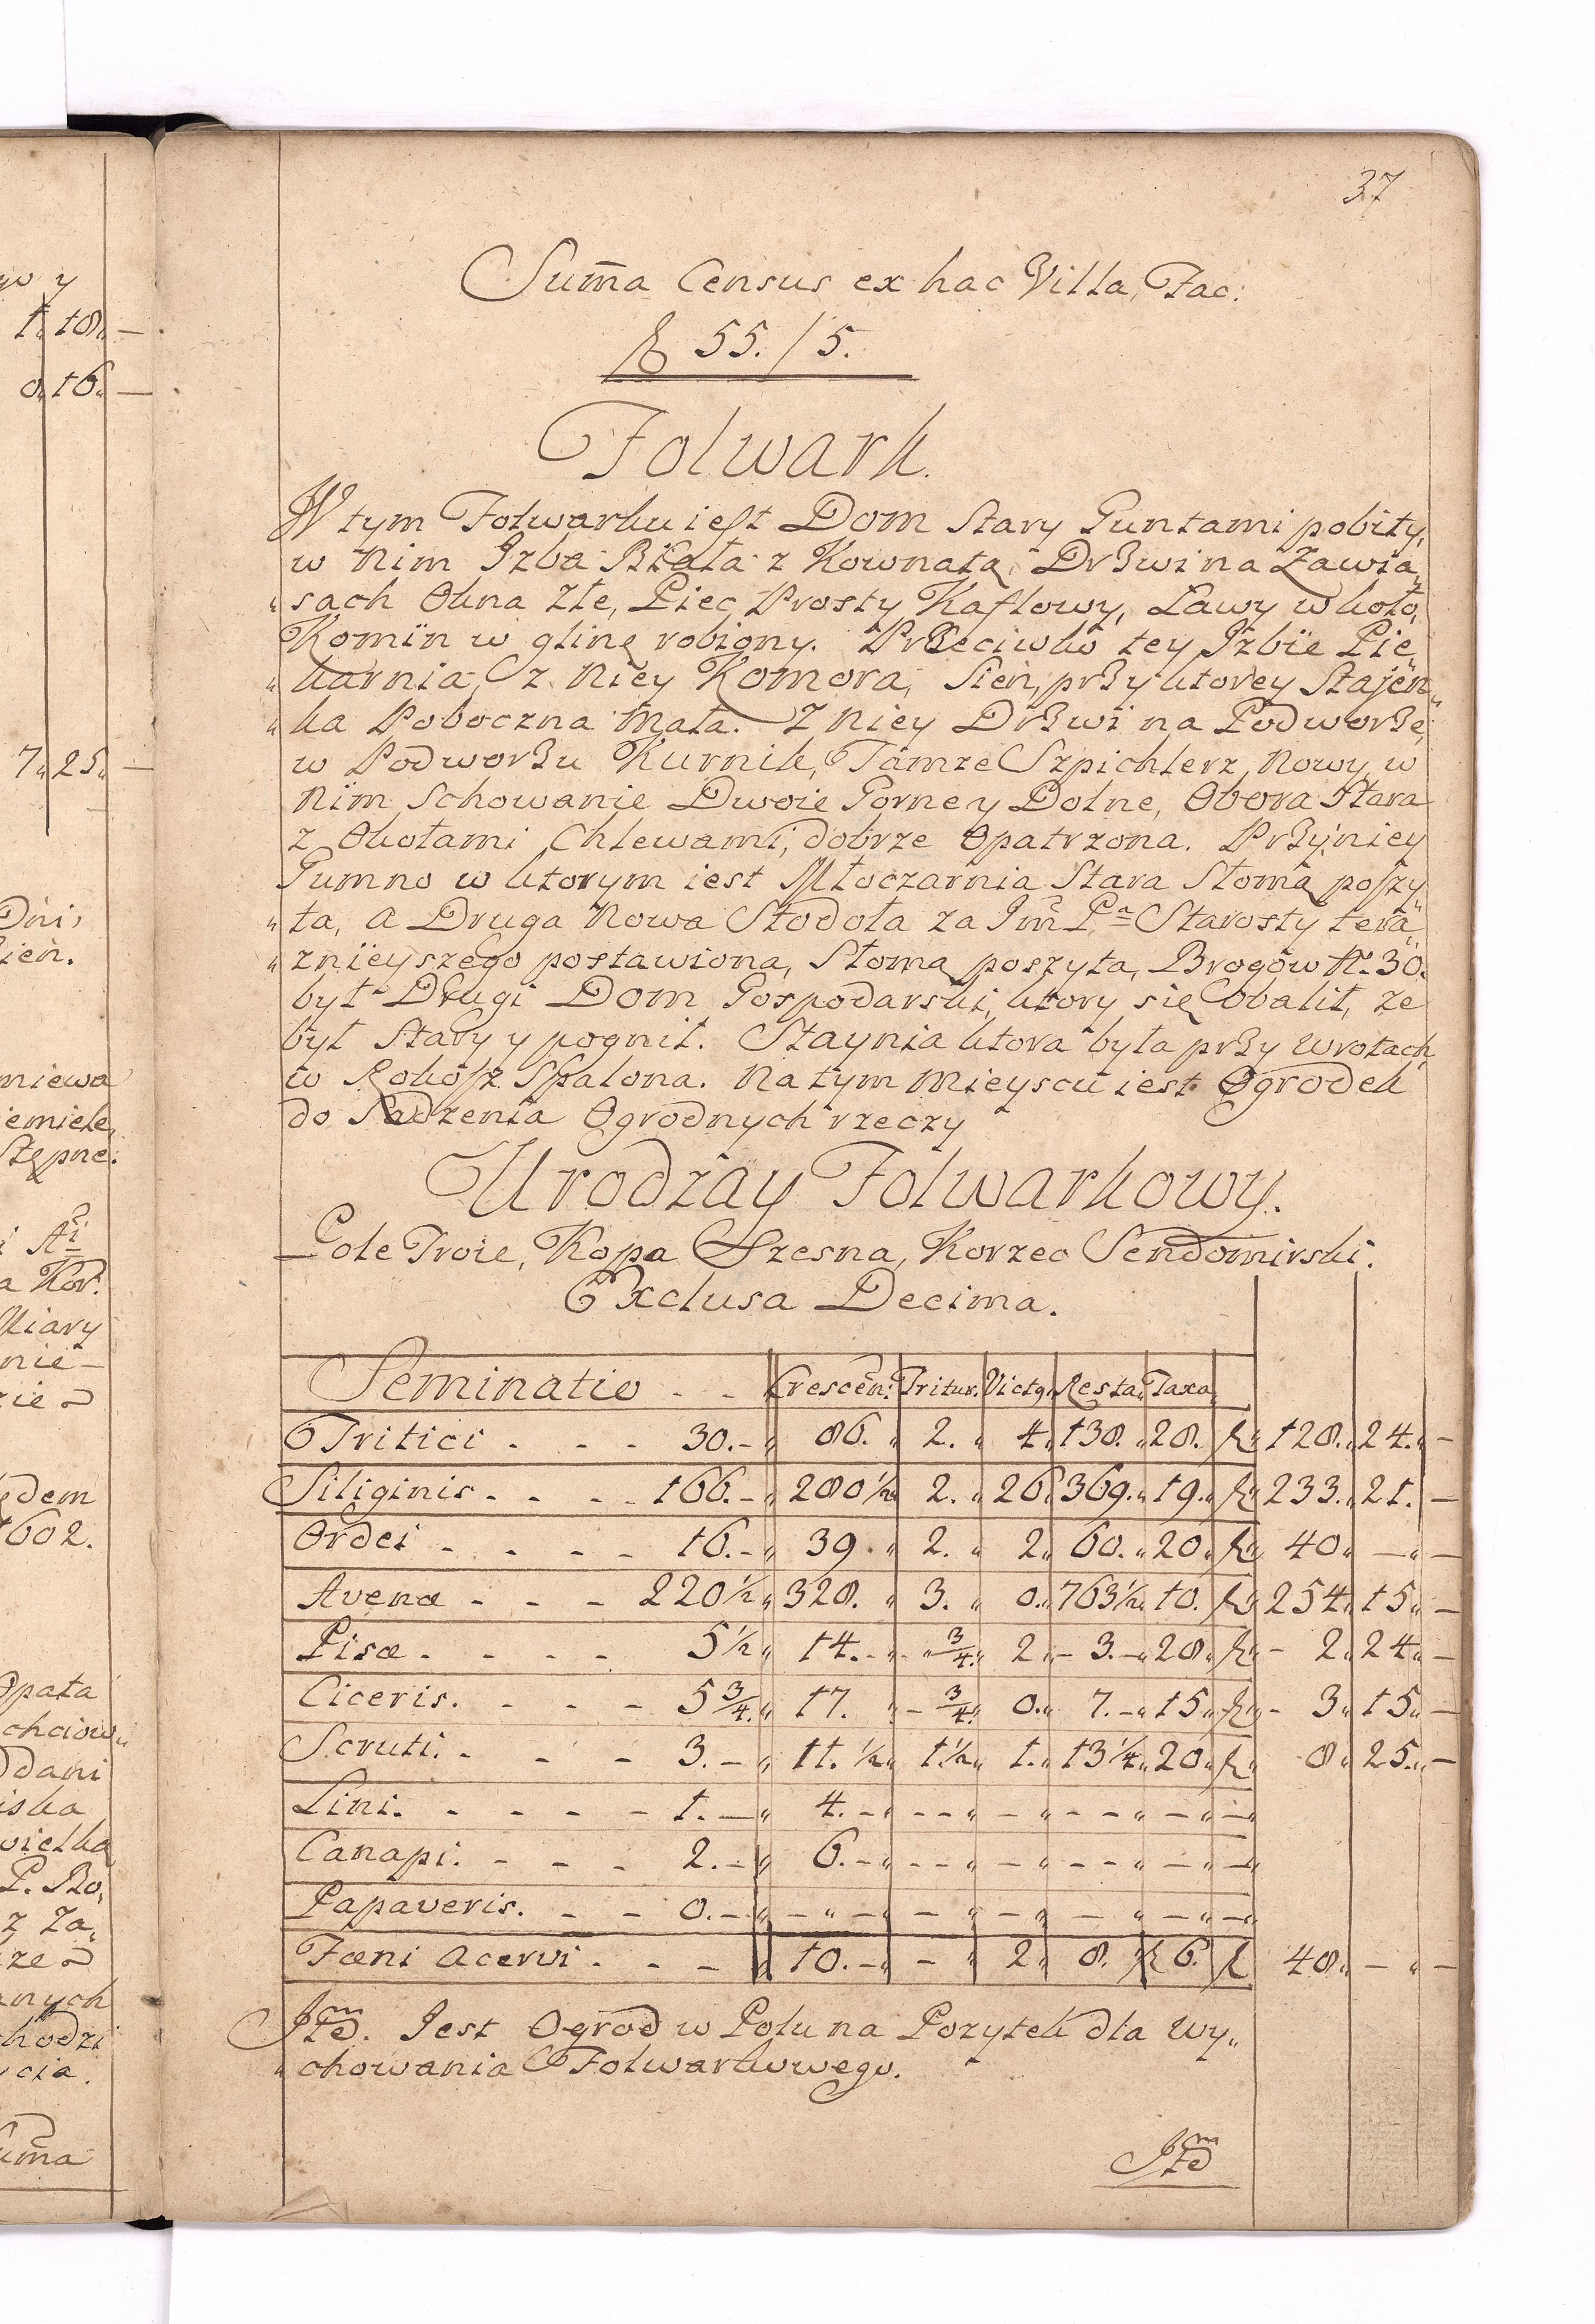 37
Sum̄a Census ex hac Villa, Fac:
fl 55. / 5.
Folwark.
W tym Folwarku iest Dom Stary Guntami pobity,
w Nim Izba Biała z Kownatą, Drzwi na Zawia„
„sach Okna Złe, Piec Prosty Kaflowy, Ławy wkoło,
Komin w glinę robiony. Przeciwko tey Izbie Pie„
„karnia, z Niey Komora, Sień, przy ktorey Stajen„
„ka Poboczna Mała. Z Niey Drzwi na Podworze,
w Podworzu Kurnik, Tamze Szpichlerz Nowy, w
Nim Schowanie Dwoie Gorne y Dolne, Obora Stara
z Okołami Chlewami, dobrze Opatrzona. Przy niey
Gumno w ktorym iest Młoczarnia Stara Słomą poszy„
„ta, a Druga Nowa Stodoła za Jm̄ Pa Starosty tera„
„znieyszego postawiona, Słomą poszyta, Brogów No. 30.
był Drugi Dom Gospodarski, ktory się Obalił, ze
był Stary y pognił. Staynia ktora była przy Wrotach
w Rokosz Spalona. Na tym Mieyscu iest Ogrodek
do Sadzenia Ogrodnych rzeczy
Urodzay Folwarkowy.
Pole Troie, Kopa Szesna, Korzec Sendomirski.
Exclusa Decima.
Seminatio . . Crescen: Tritur. Victq. Resta. Taxa
Tritici . - - 30.- 86. 2. 4. 138. 28. fl 128. 24. -
Siliginis . . . 166.- 280 1/2 2. 26. 369. 19. fl 233. 21. -
Ordei . . . - 16.- 39. 2. 2. 60. 20. fl 40. - -
Avenæ - - - 220 1/2 328. 3. 0. 763 1/2 10. fl 254. 15. -
Pisæ . - - - 5 1/2 14. - 3/4 2. - 3. - 28. fl - 2. 24. -
Ciceris. - - - 5 3/4 17. - 3/4 0. 7. - 15. fl - 3. 15. -
Scruti. - - - 3. - 11. 1/2 1. 1/2 1. 13 1/4 20. fl 8. 25. -
Lini. - - - - 1. - 4. - - - - - - - -
Canapi. - - - 2. - 6. - - - - - - - -
Papaveris. - - 0. - - - - - - - - -
Fœni Acervi . - - 10. - - 2. 8. fl 6. fl 48. - -
Itm̃. Jest Ogrod w Polu na Pozytek dla Wy„
„chowania Folwarkowego.
Itm̃